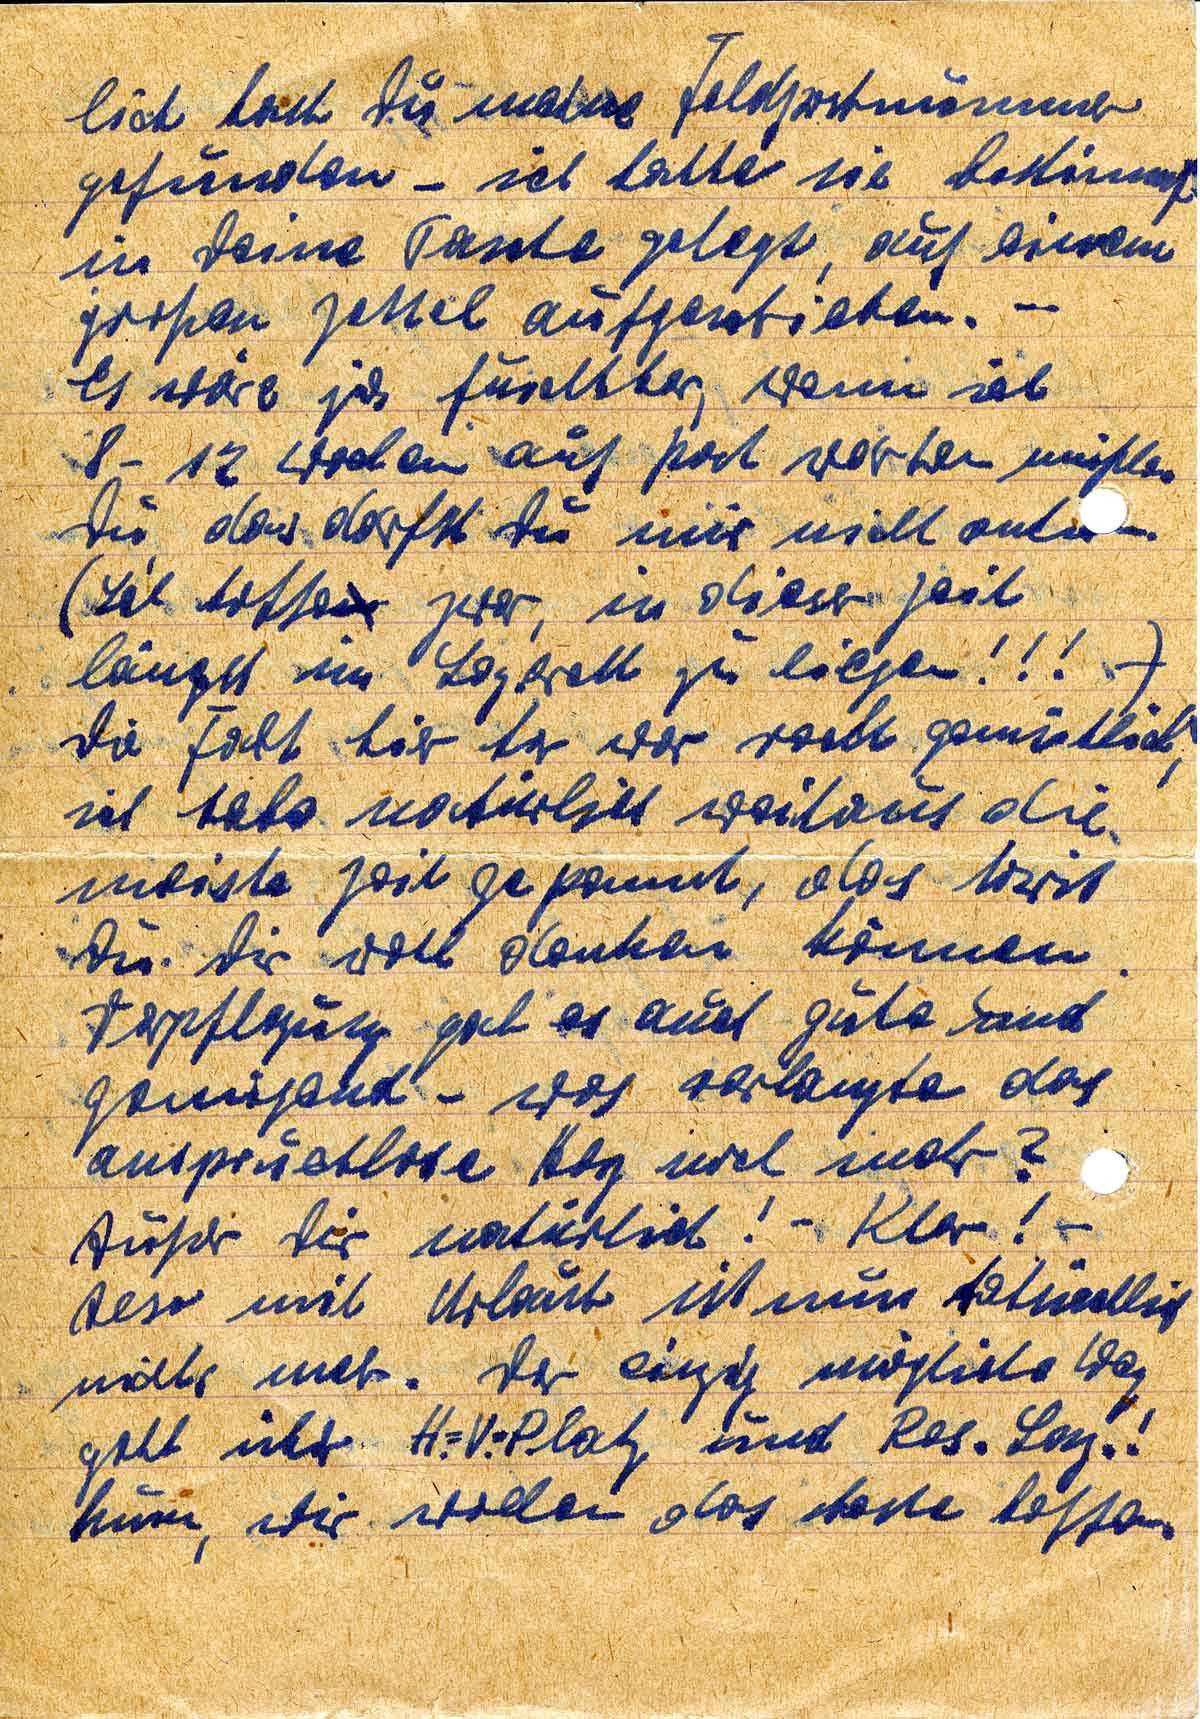 lich hast Du meine Feldpostnummer
gefunden – ich hatte sie bestimmt
in Deine Tasche gelegt, auf einem
großen Zettel aufgeschrieben. –
Es wäre ja furchtbar, wenn ich
8 – 12 Wochen auf Post warten müßte.
Du, das darfst Du mir nicht antun.
(Ich hoffe zwar, in dieser Zeit
längst im Lazarett zu liegen!!! –)
Die Fahrt hier her war recht gemütlich,
ich habe natürlich weitaus die
meiste Zeit gepennt, das wirst
Du Dir wohl denken können.
Verpflegung gab es auch gute und
genügend – was verlangte das
anspruchslose Herz noch mehr?
Außer Dir natürlich! – Klar! –
Also mit Urlaub ist nun tatsächlich
nichts mehr. Der einzig mögliche Weg
geht über H.=V.=Platz und Res. Laz.!
Hum, wir wollen das beste hoffen.